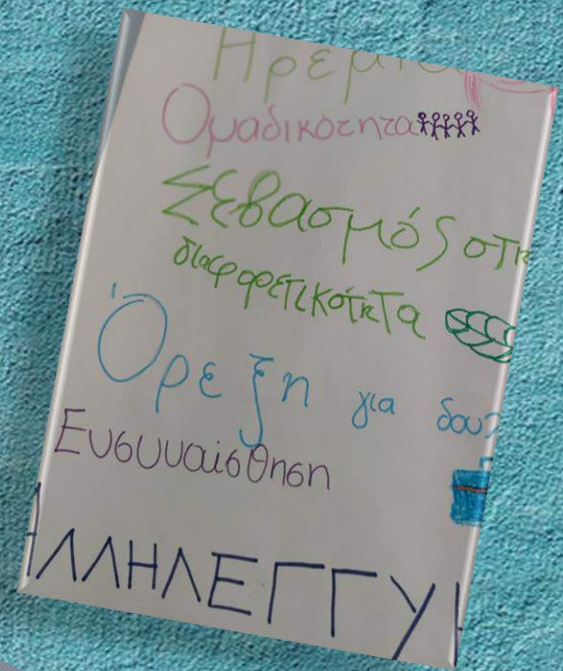 Ηρεμια
Ομαδικοτητα
Σεβασμός στη
διαφορετικότητα
Όρεξη για δου
Ευσυναισθηση
ΑΛΛΗΛΕΓΓΥ